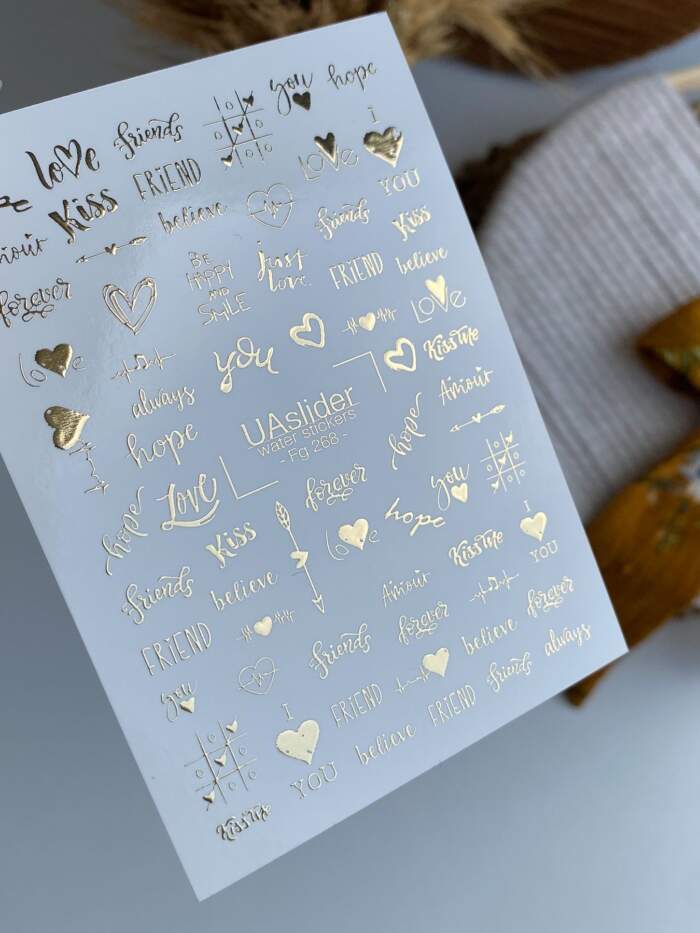 you hope
love friends
I
Kiss FRIEND Love YOU
believe friends Kiss
forever BE
HAPPY
AND
SMILE just
love FRIEND believe
love you Love Kiss Me
always
hope UAslider
water stickers
- Fg 268 - hope Amour
hope Love forever you
Kiss love hope I
YOU
friends believe Kiss Me
FRIEND Amour
friends forever believe forever
you FRIEND friends always
I
YOU believe FRIEND
Kiss Me